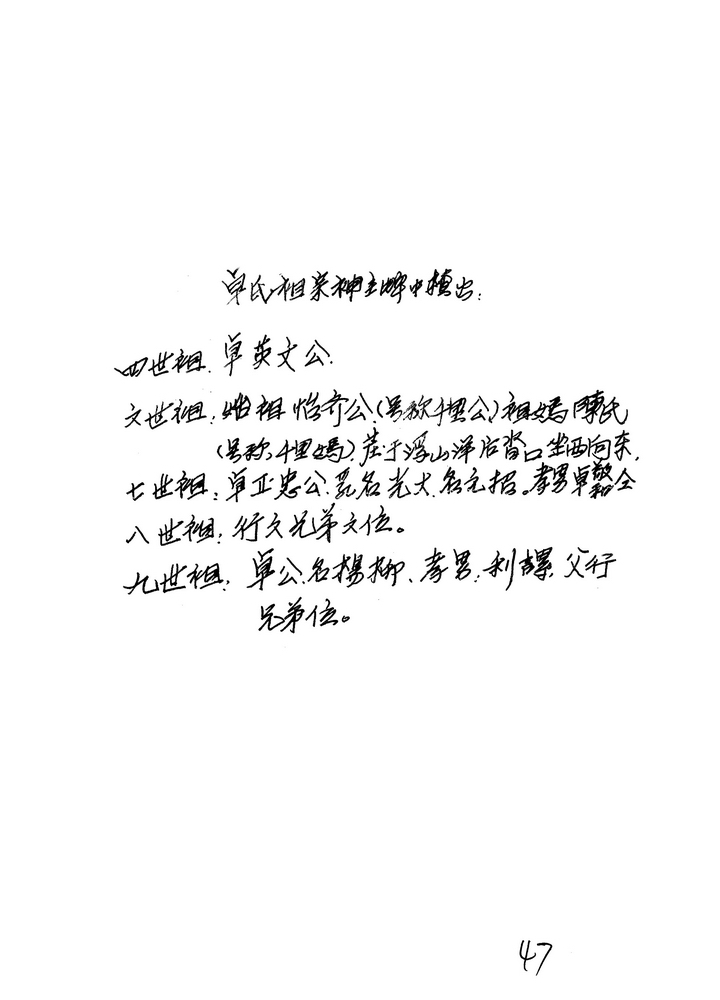 卓氏祖宗神主牌中摘出:
四世祖.卓英文公.
六世祖:始祖怡斉公(号称千里公)祖妈陳氏
(号称千里妈).茔于浮山洋后 口坐西向东.
七世祖:卓正忠公.乳名光大.名元招。孝男卓 全
八世祖:行文兄弟文位。
九世祖:卓公.名楊柳、孝男:利 父行
兄弟位。
47